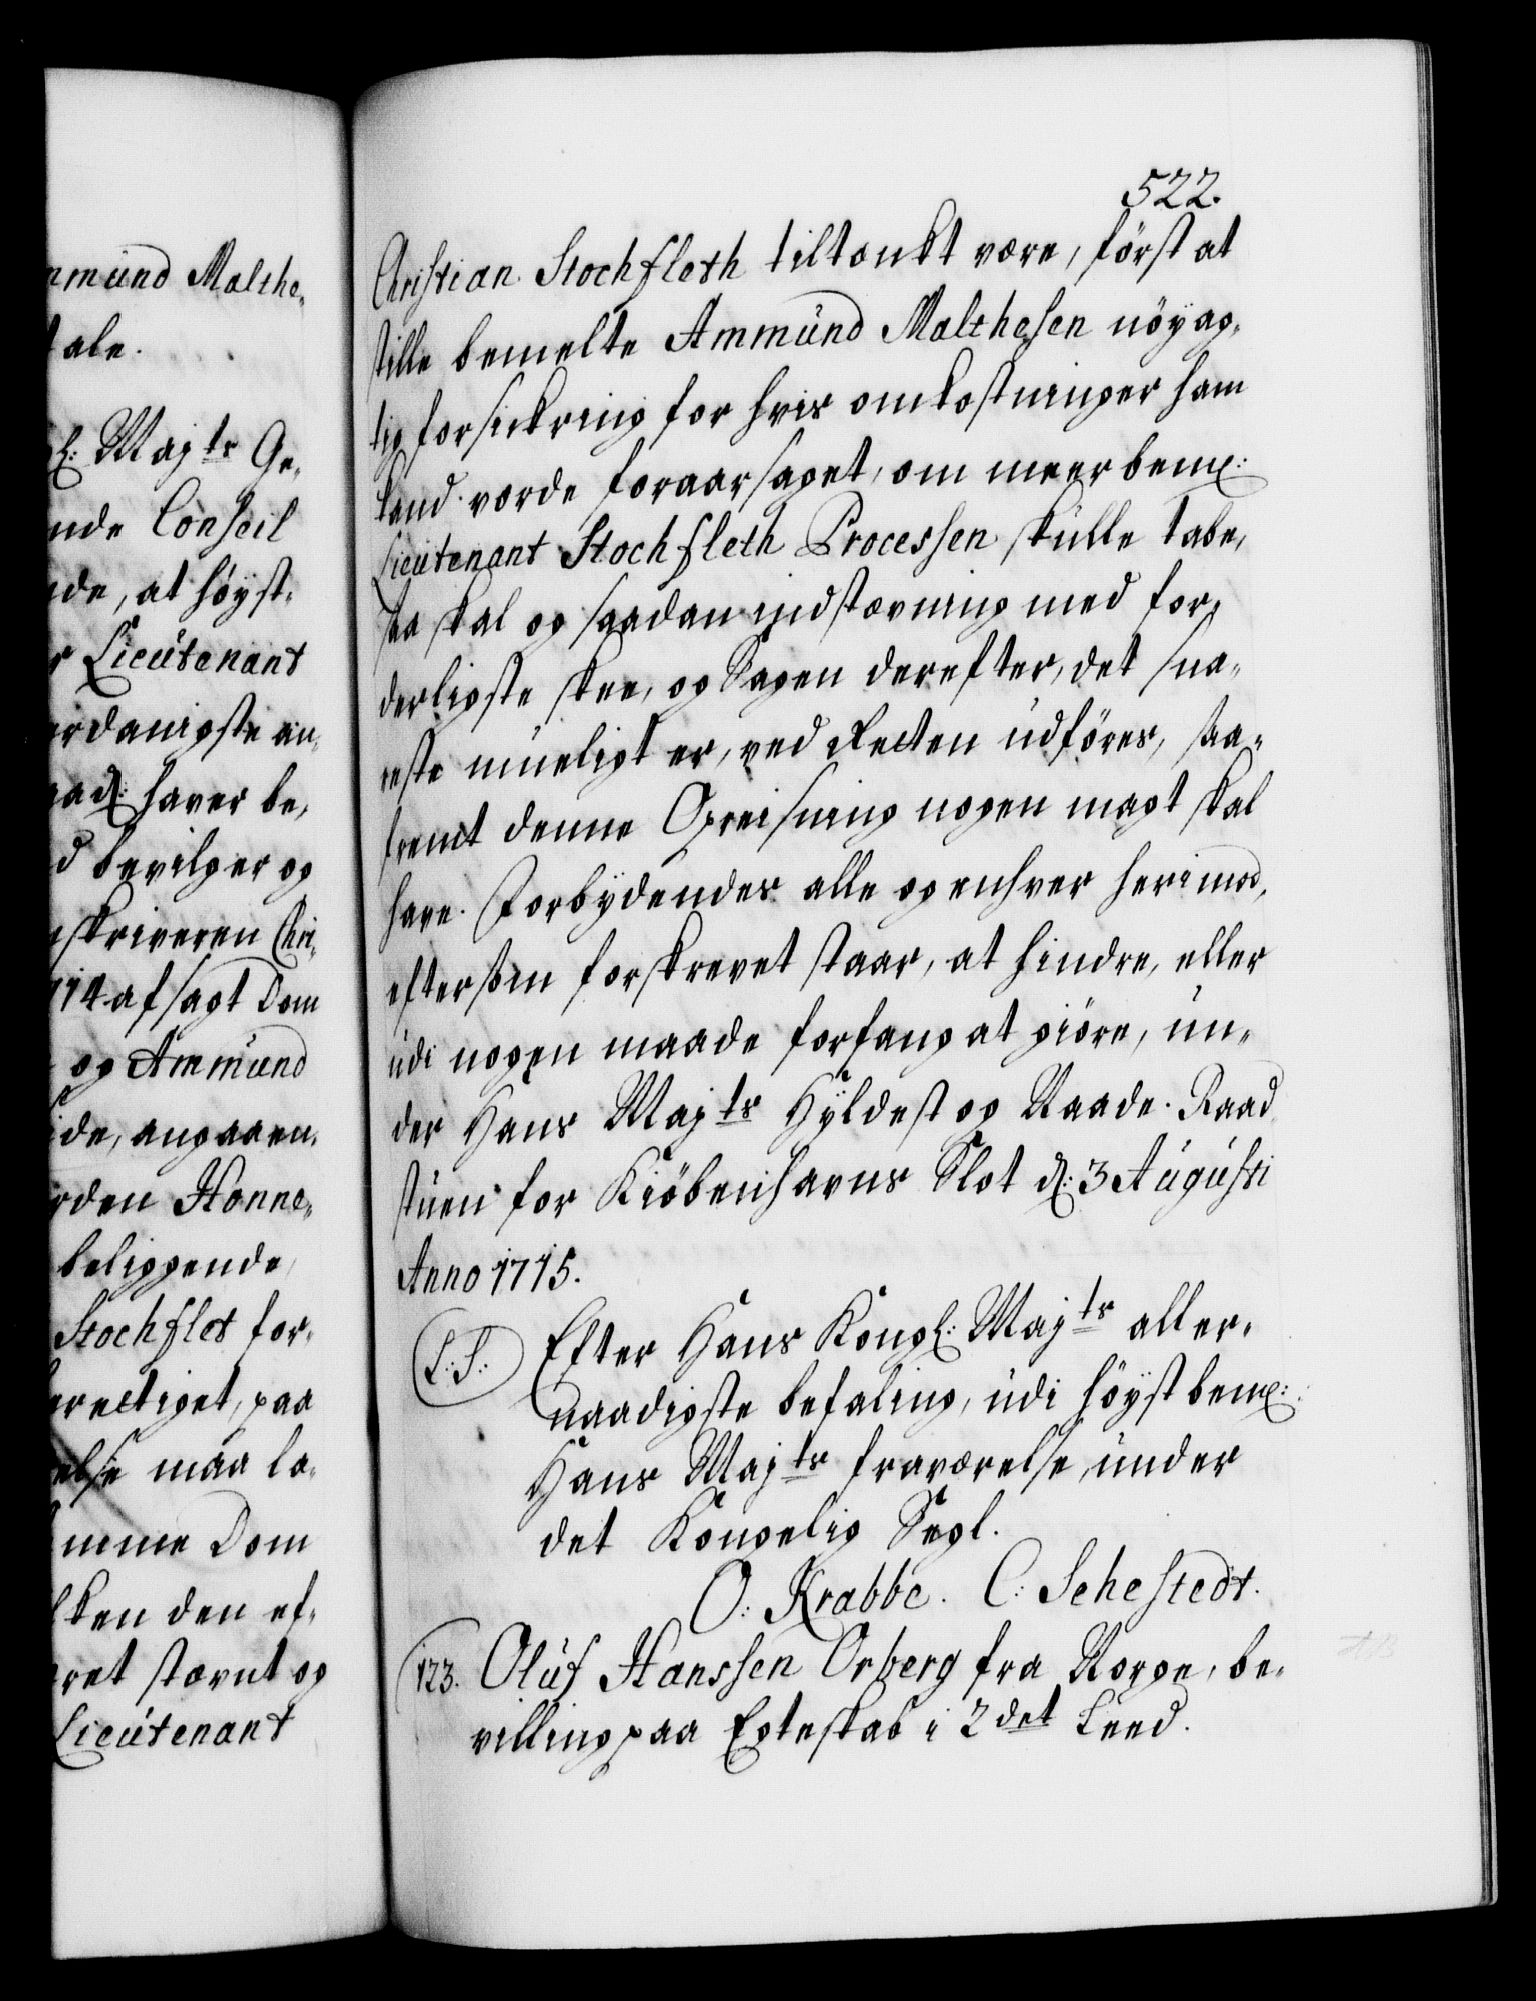 mmund Malthe,
tale.
l: Majts Ge,
nde Conseil
de, at höyst,
r Lieutenant
rdanigste an,
ad: haver be,
d bevilger og
skriveren Chri,
714 afsagt Dom
og Ammund
ide, angaaen,
rden Honne,
beliggende,
Stochflet for,
erettiget, paa
else maa la,
mme Dom
lken den ef,
ret stævnt og
Lieutenant
522.
Christian Stochfleth tiltænkt være, först at
stille bemelte Ammund Malthesen nöyag,
tig forsickring for hvis omkostninger ham
kand vorde foraarsaget, om meerbem:
Lieutenant Stochfleth Processen skulle tabe,
saa skal og saadan indstævning med for,
derligste skee, og Sagen derefter, det sna,
reste mueligt er, ved Retten udföres, saa,
fremt denne Opreisning nogen magt skal
have. Forbydendes alle og enhver herimod,
eftersom forskrevet staar, at hindre, eller
udi nogen maade forfang at giöre, un,
der Hans Majts Hyldest og Naade. Raad
stuen for Kiöbenhavns Slot d: 3 Augusti
Anno 1715.
L:S: Efter Hans Kongl: Majts aller,
naadigste befaling, udi höystbem:
Hans Majts fraværelse under
det Kongelig Segl.
O: Krabbe. C: Sehestedt.
123. Oluf Hanssen Orberg fra Norge, be,
villing paa Egteskab i 2det Leed.